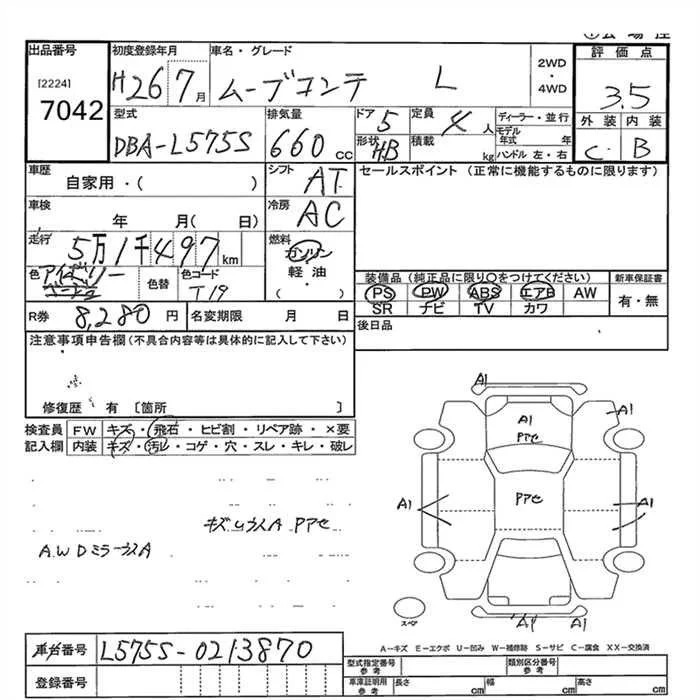 出品番号 初度登録年月 車名・グレード 評価点
[2224] 7042
H26 7月 ムーブコンテ L 2WD・4WD 3.5
型式 排気量 ドア 定員 ディーラー・並行 外装 内装
DBA-L575S 660cc 5 4人 モデル年式 年 C B
形状 H.B 積載 kg ハンドル 左・右
車歴 シフト セールスポイント(正常に機能するものに限ります)
自家用・( ) AT
車検 冷房
年 月( 日) AC
走行 5万1千497km 燃料
ガソリン
軽油
・( )
色 アイボリー 色替 色コード T19
装備品(純正品に限り○をつけてください) 新車保証書
PS PW ABS エアB AW 有・無
SR ナビ TV カワ
R券 8,280円 名変期限 月 日 後日品
注意事項申告欄(不具合内容等は具体的に記入して下さい)
修復歴 有〔箇所 〕
検査員 FW キズ・飛石・ヒビ割・リペア跡・×要
記入欄 内装 キズ・汚レ・コゲ・穴・スレ・キレ・破レ
A1
A1 A1
PPセ
A1 PPセ A1
A1
スペア
車台番号 L575S-0213870
登録番号
A-キズ E-エクボ U-凹み W-補修跡 S-サビ C-腐食 XX-交換済
型式指定番号 参考 類別区分番号 参考
車庫証明用 参考 長さ cm 幅 cm 高さ cm